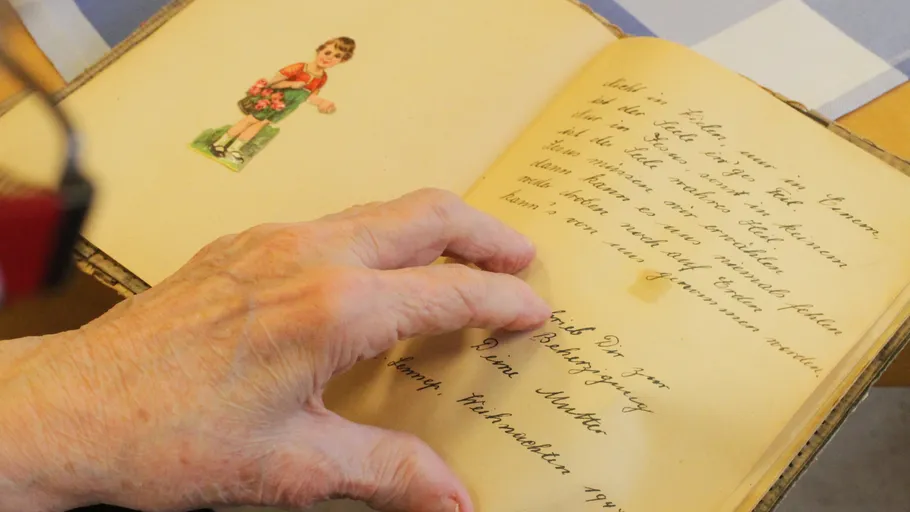 Nicht in Vielen, nur in Einem,
ist der Seele ew'ges Teil.
Nur in Jesus, sonst in keinem
ist der Seele wahres Heil.
Jesus müssen wir erwählen
dann kann es uns niemals fehlen
weder droben noch auf Erden
kann's von uns genommen werden.
Dir zur
Beherzigung
Deine Mutter
Lennep, Weihnachten 194